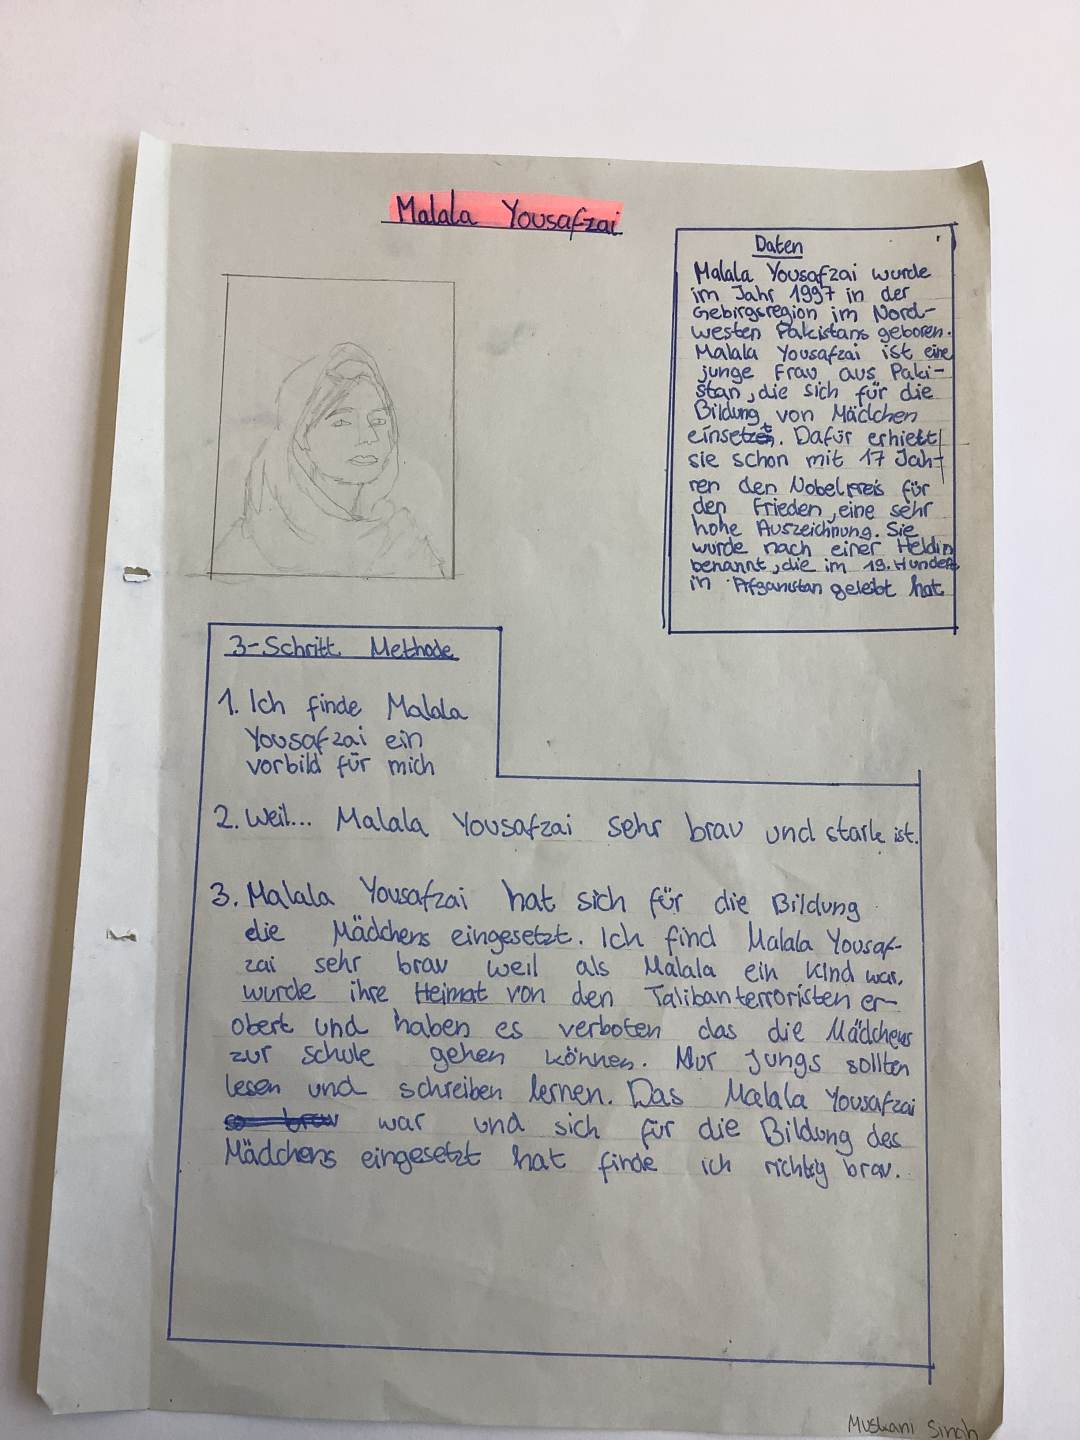 Malala Yousafzai
Daten
Malala Yousafzai wurde
im Jahr 1997 in der
Gebirgsregion im Nord-
westen Pakistans geboren.
Malala Yousafzai ist eine
junge Frau aus Paki-
stan, die sich für die
Bildung von Mädchen
einsetzt. Dafür erhielt
sie schon mit 17 Jah-
ren den Nobelpreis für
den Frieden, eine sehr
hohe Auszeichnung. Sie
wurde nach einer Heldin
benannt, die im 19. Hundert
in Afganistan gelebt hat
3-Schritt Methode
1. Ich finde Malala
Yousafzai ein
vorbild für mich
2. Weil... Malala Yousafzai sehr brav und stark ist.
3. Malala Yousafzai hat sich für die Bildung
die Mädchens eingesetzt. Ich find Malala Yousaf-
zai sehr brav weil als Malala ein Kind war,
wurde ihre Heimat von den Talibanterroristen er-
obert und haben es verboten das die Mädchens
zur schule gehen können. Nur Jungs sollten
lesen und schreiben lernen. Das Malala Yousafzai
so brav war und sich für die Bildung des
Mädchens eingesetzt hat finde ich richtig brav.
Muskani Singh